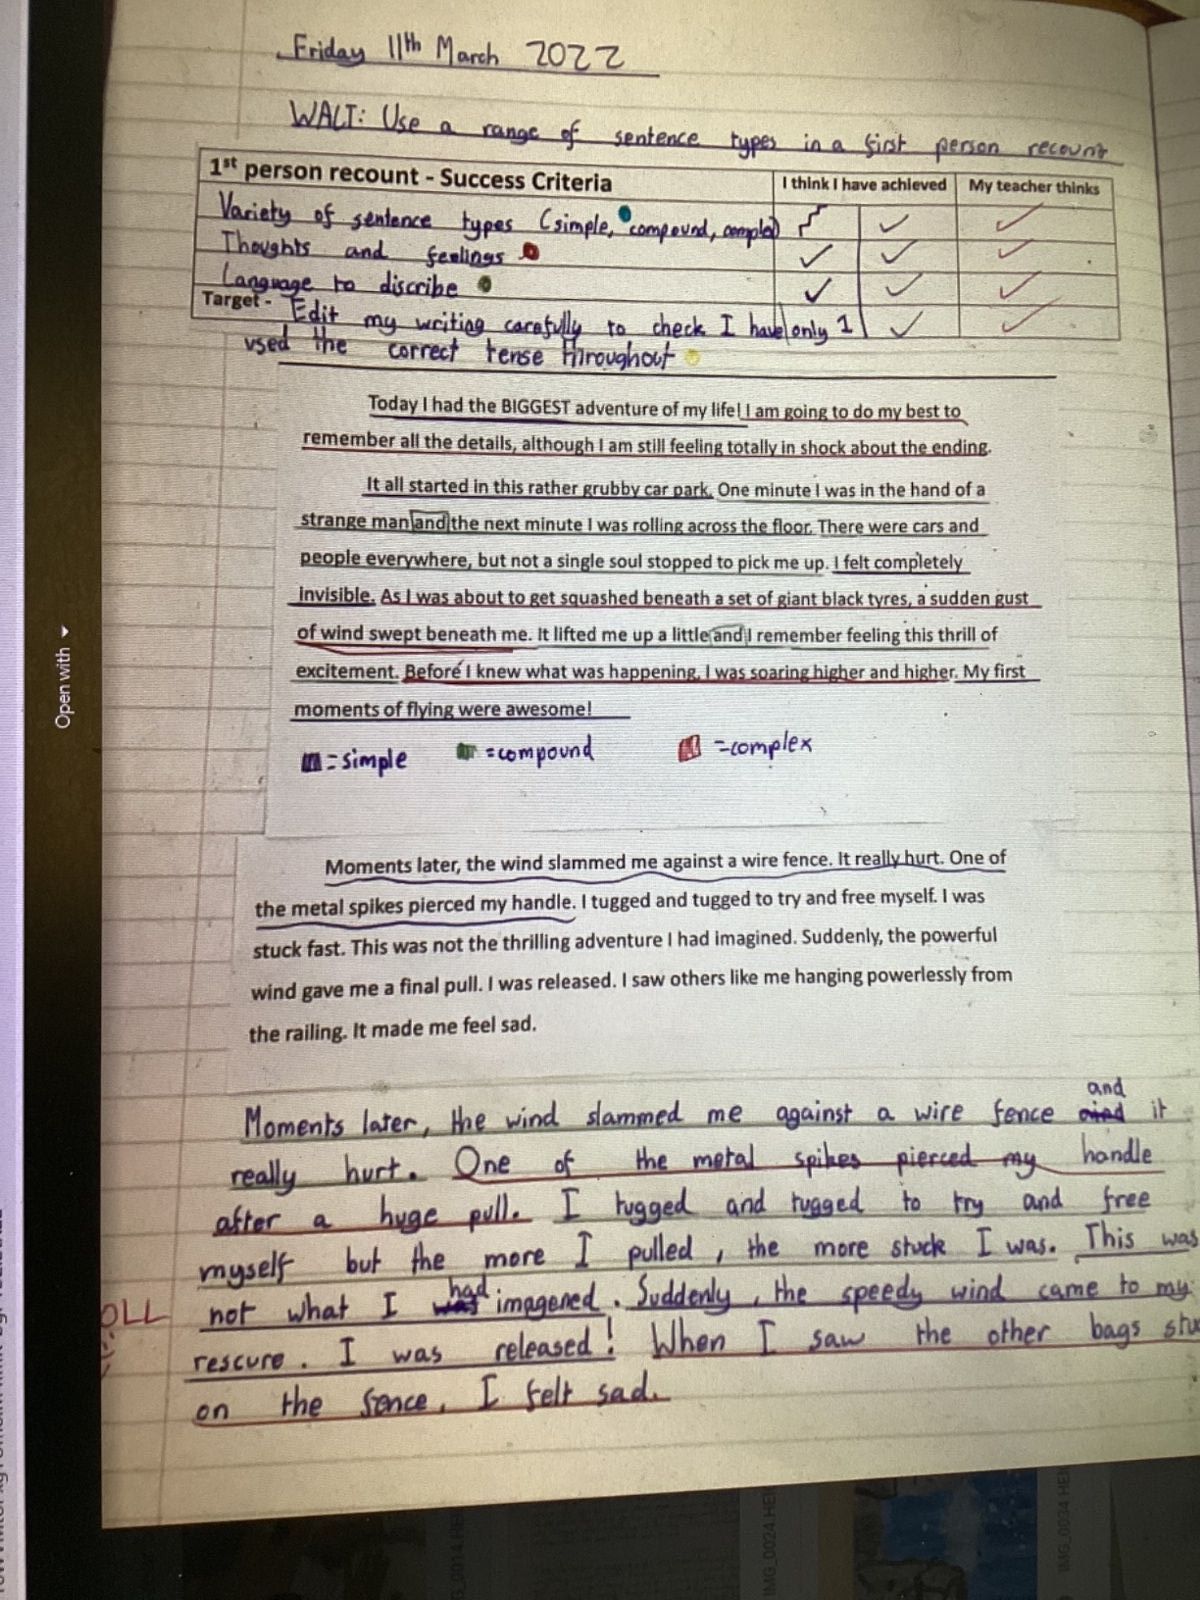 Friday 11th March 2022
WALT: Use a range of sentence types in a first person recount
1st person recount - Success Criteria I think I have achieved My teacher thinks
Variety of sentence types (simple, compound, complex)
Thoughts and feelings
Language to discribe
Target - Edit my writing carefully to check I have only 1
used the correct tense throughout
Today I had the BIGGEST adventure of my life! I am going to do my best to
remember all the details, although I am still feeling totally in shock about the ending.
It all started in this rather grubby car park. One minute I was in the hand of a
strange man and the next minute I was rolling across the floor. There were cars and
people everywhere, but not a single soul stopped to pick me up. I felt completely
invisible. As I was about to get squashed beneath a set of giant black tyres, a sudden gust
of wind swept beneath me. It lifted me up a little and I remember feeling this thrill of
excitement. Before I knew what was happening, I was soaring higher and higher. My first
moments of flying were awesome!
=simple =compound =complex
Moments later, the wind slammed me against a wire fence. It really hurt. One of
the metal spikes pierced my handle. I tugged and tugged to try and free myself. I was
stuck fast. This was not the thrilling adventure I had imagined. Suddenly, the powerful
wind gave me a final pull. I was released. I saw others like me hanging powerlessly from
the railing. It made me feel sad.
Moments later, the wind slammed me against a wire fence and it
really hurt. One of the metal spikes pierced my handle
after a huge pull. I tugged and tugged to try and free
myself but the more I pulled, the more stuck I was. This was
OLL not what I had imagened. Suddenly, the speedy wind came to my
rescure. I was released! When I saw the other bags
on the fence, I felt sad.
Open with
IMG_0024.HE
IMG_0034.HE